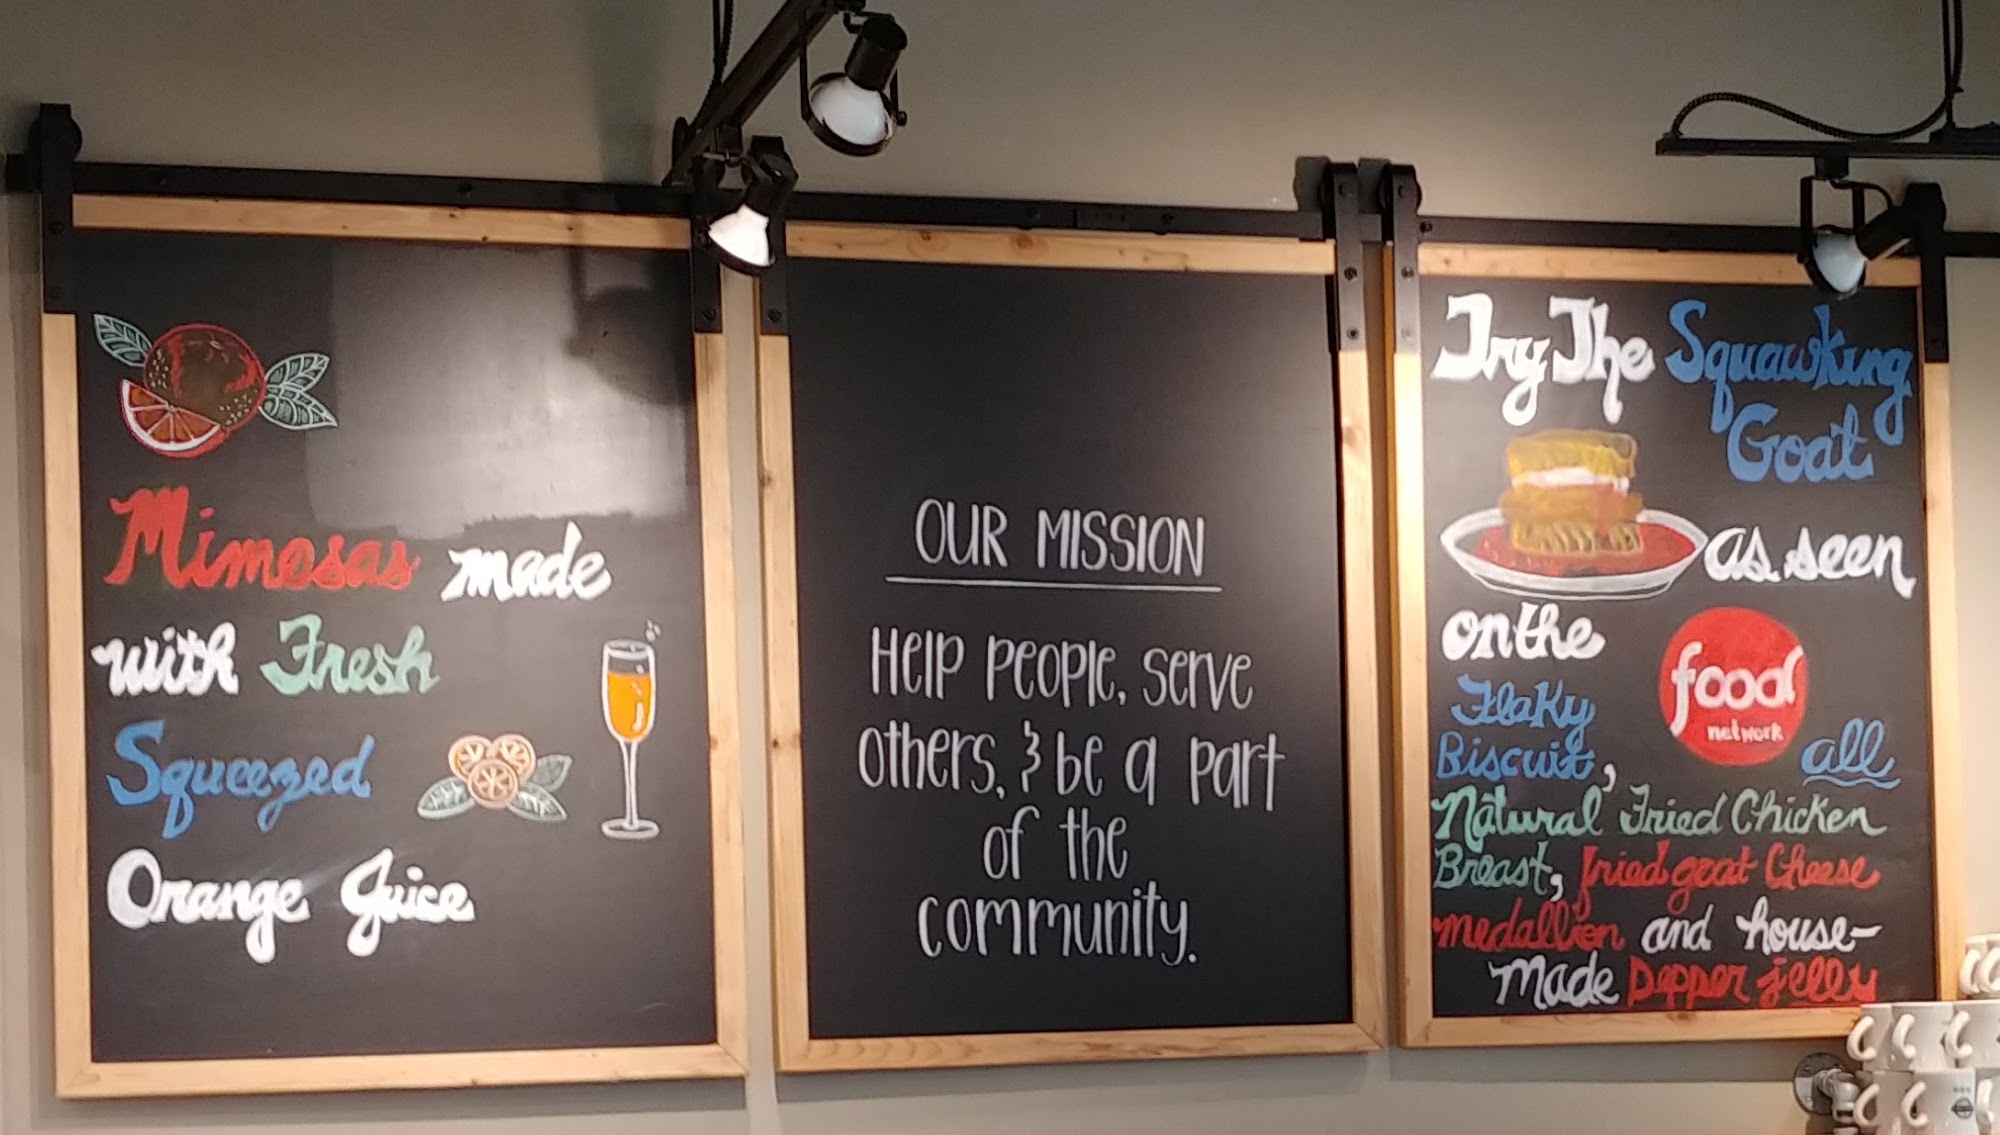 Mimosas made
with Fresh
Squeezed
Orange Juice
OUR MISSION
HElp PEOPLE, SERVE
OTHERS, & bE A PART
OF THE
COMMUNITY.
Try The Squawking
Goat
as seen
on the
food
network
Flaky
Biscuit, all
Natural Fried Chicken
Breast, fried goat Cheese
medallion and house-
made pepper jelly